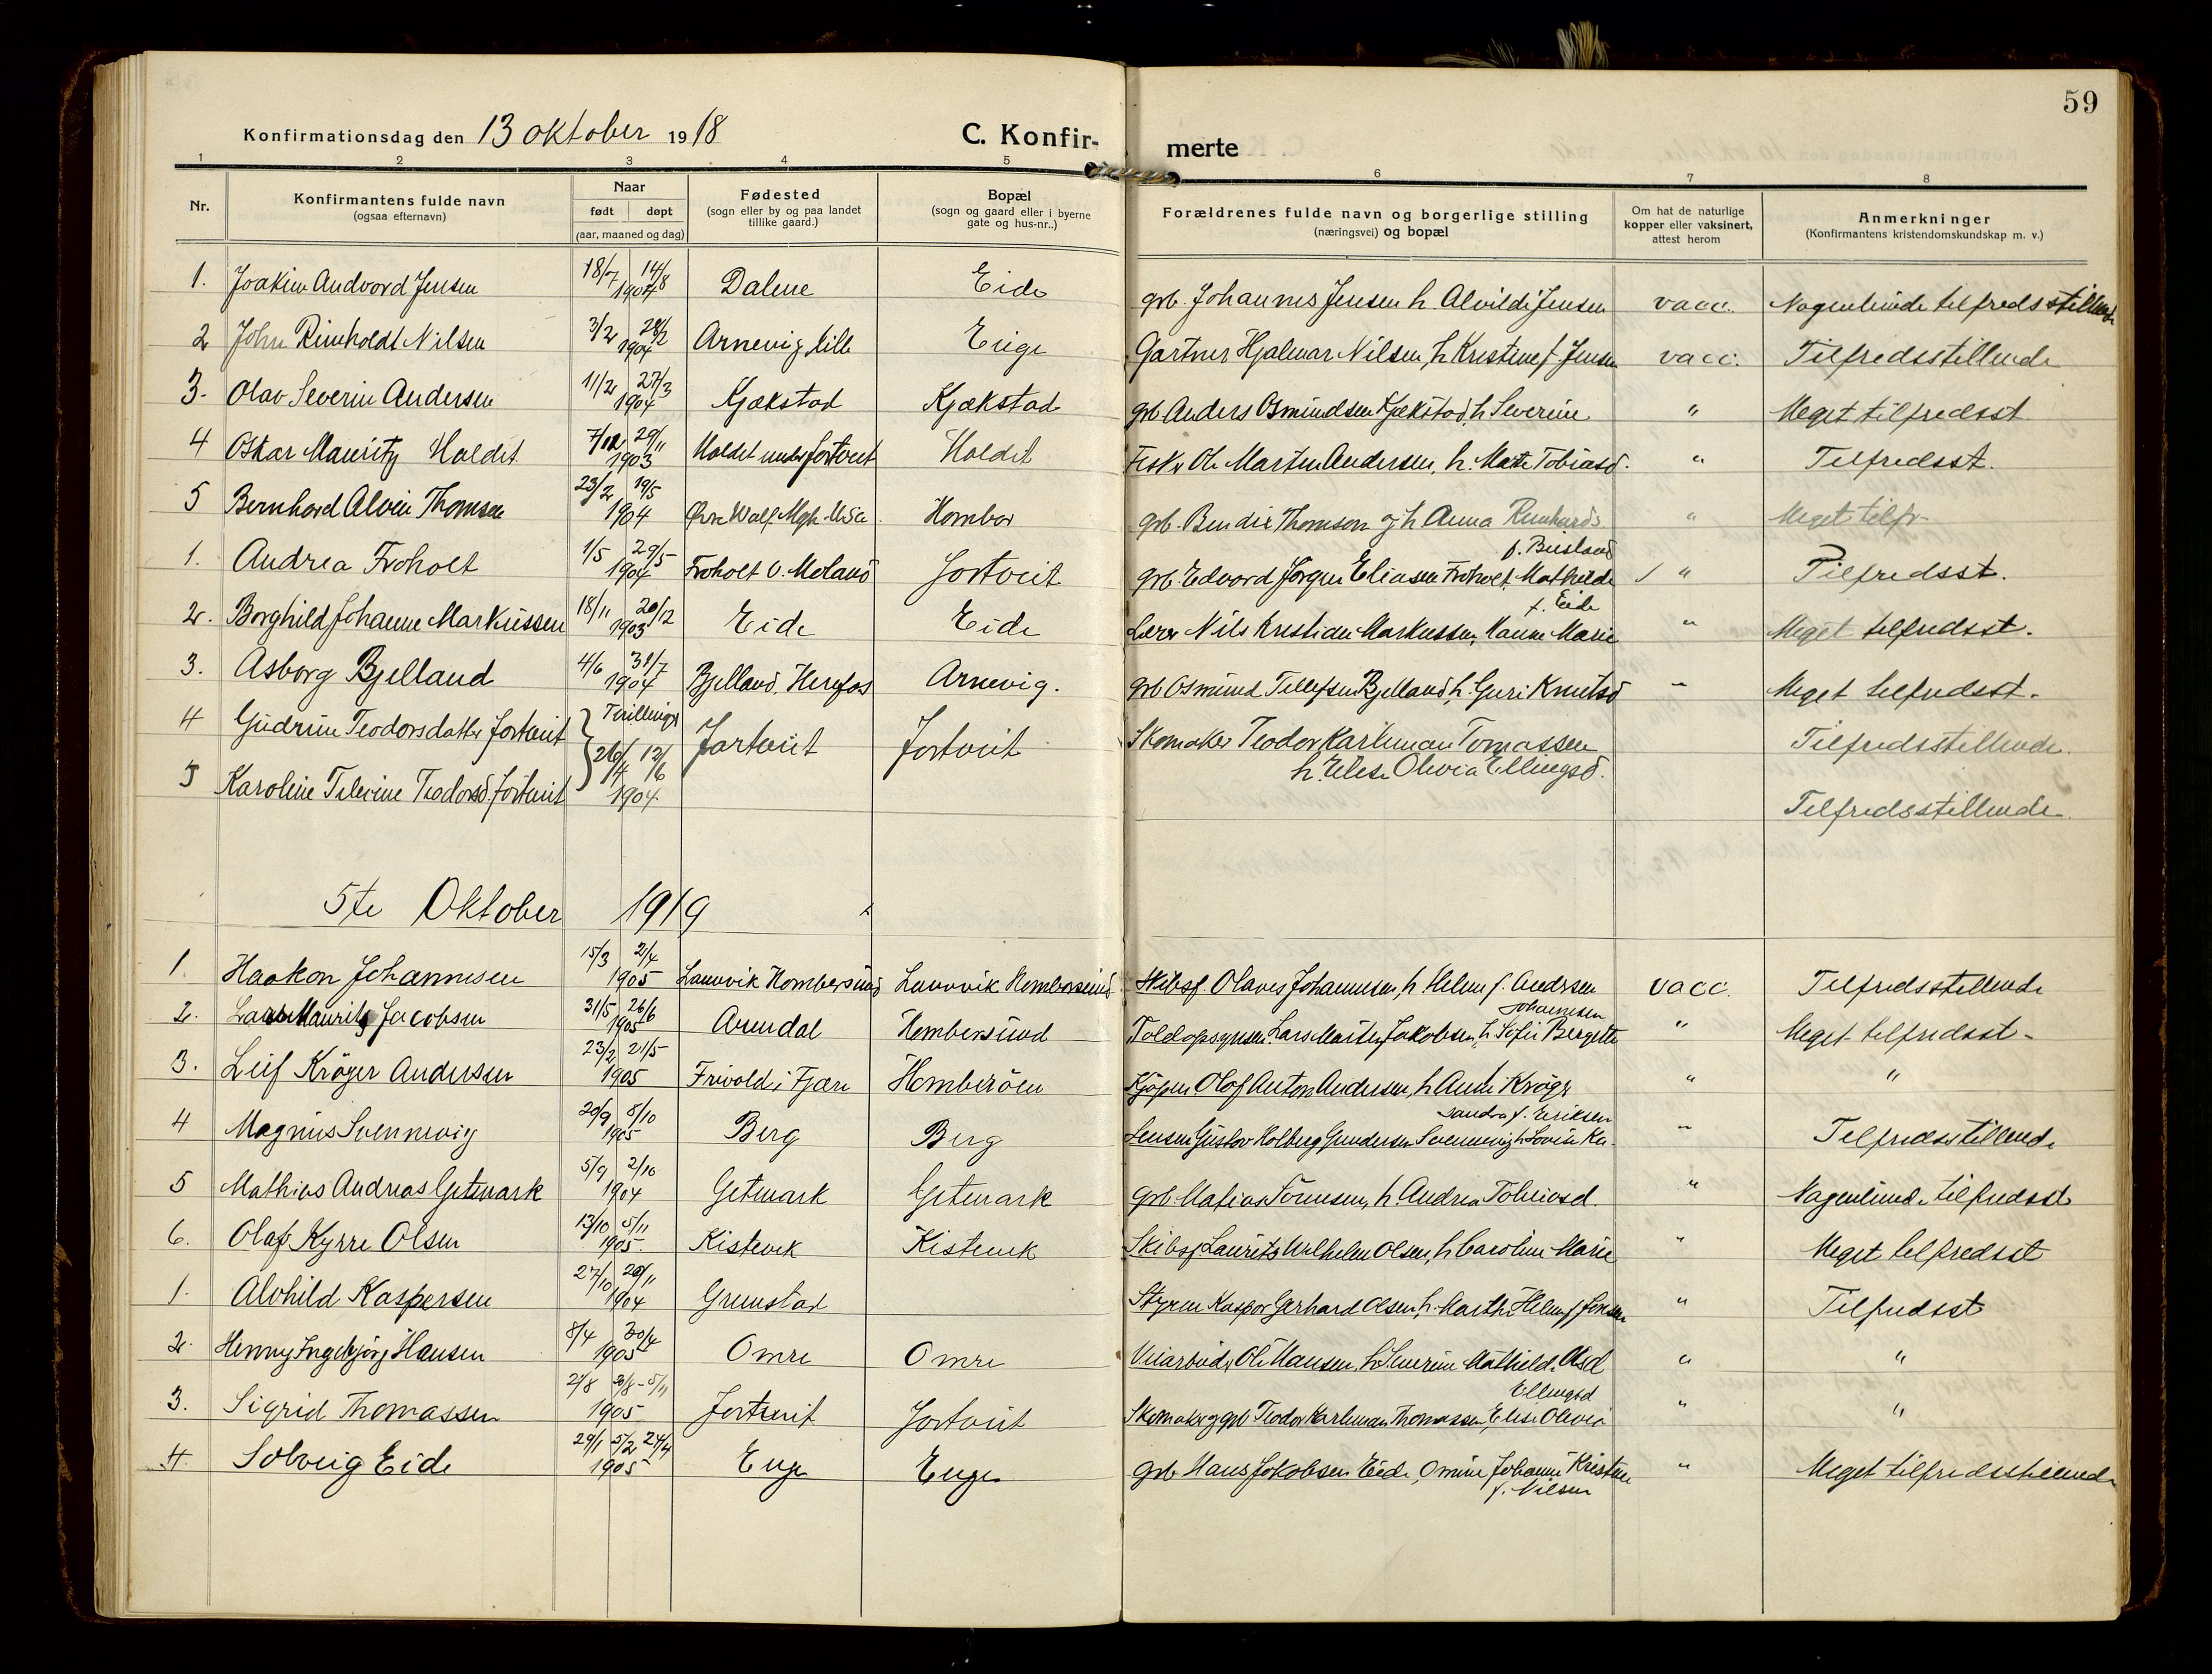 59
Konfirmationsdag den 13 oktober 1918 C. Konfir- merte
1 2 3 4 5 6 7 8
Nr. Konfirmantens fulde navn (ogsaa efternavn) Naar født døpt (aar, maaned og dag) Fødested (sogn eller by og paa landet tillike gaard.) Bopæl (sogn og gaard eller i byerne gate og hus-nr..) Forældrenes fulde navn og borgerlige stilling (næringsvei) og bopæl Om hat de naturlige kopper eller vaksinert, attest herom Anmerkninger (Konfirmantens kristendomskundskap m. v.)
1. Joakim Andvord Jensen 18/7 14/8 1904 Dalene Eide grb. Johannes Jensen h. Alvilde Jensen vacc. Nogenlunde tilfredsstillende
2 John Reinholdt Nilsen 3/2 28/2 1904 Arnevig lille Eige Gartner Hjalmar Nilsen, h Kristine f. Jensen vacc. Tilfredsstillende
3. Olav Severin Andersen 11/2 27/3 1904 Kjækstad Kjækstad grb Anders Osmundsen Kjækstad, h Severine " Meget tilfredsst
4 Oskar Mauritz Holdet 29/11 1903 Holdet under Jortveit Holdet Fisk. Ole Martin Andersen, h. Marte Tobiasd. " Tilfredsst.
5 Bernhard Alvin Thomsen 23/2 19/5 1904 Hombor grb. Bendix Thomson og h Anna Reinhards " Meget tilfr-
1. Andrea Froholt 1/5 29/5 1904 Froholt V. Moland Jortveit grb. Edvard Jørgen Eliasen Froholt, Mathilde f. Beisland " Tilfredsst.
2. Borghild Johanne Markussen 18/11 20/12 1903 Eide Eide Lærer Nils Kristian Markussen, Hanne Marie f. Eide " Meget tilfredsst.
3. Asborg Bjelland 4/6 31/7 1904 Bjelland, Herefos Arnevig. grb Osmund Tellefsen Bjelland, h. Guri Knutsd " Meget tilfredsst.
4 Gudrun Teodorsdatter Jortveit } Tvillinger 26/4 12/6 1904 Jortveit Jortveit Skomaker Teodor Karleman Tomassen Tilfredsstillende.
h. Elise Olivia Ellingsd.
5 Karoline Teodorsd Jortveit Tilfredsstillende.
5te Oktober 1919
1. Haakon Johannesen 15/3 21/4 1905 Lauvvik Hombersund Lauvvik Hombersund Skibsf. Olaves Johannesen, h. Helene f. Andersen vacc. Tilfredsstillende
2. Mauritz Jacobsen 31/5 26/6 1905 Arendal Hombersund Toldopsynsm. Lars Martin Jakobsen, h Sofie Bergette Johannesen " Meget tilfredsst-
3. Leif Krøger Andersen 23/2 21/5 1905 Frivold i Fjære Homberøen Kjøpm Olaf Anton Andersen, h Krøger " "
4 Magnus Svennevig 20/9 8/10 1905 Berg Berg Lensm Gustav Holberg Gundersen Svennevig h Lovise Ka- sandra f. Eriksen " Tilfredsstillende
5 Mathias Andreas Gitmark 5/9 2/10 1904 Gitmark Gitmark grb. Matias Sørensen, h. Andrea Tobiasd. " Nogenlunde tilfredsst
6. Olaf Kyrre Olsen 13/10 5/11 1905. Kistevik Kistevik Skibsf Laurits Wilhelm Olsen, h Caroline Marie " Meget tilfredsst
1. Alvhild Kaspersen 27/10 20/11 1904 Grimstad Styrm Kasper Gerhard Olsen, h. Marthe Helene f. Jensen " Tilfredsst
2. Henny Ingebjørg Hansen 8/4 30/4 1905 Omre Omre Veiarbeider Ole Hansen, h. Severine Mathilde Olsd " "
3. Sigrid Thomassen 21/8 5/11 1905 Jortveit Jortveit Skomaker og grb Teodor Karleman Thomassen, Elise Olivia Ellingsd " "
4. Solveig Eide 29/1 5/2 24/4 1905 Enge Enge grb Hans Jakobsen Eide, Omine Johanne Kristine f. Nilsen " Meget tilfredsstillende